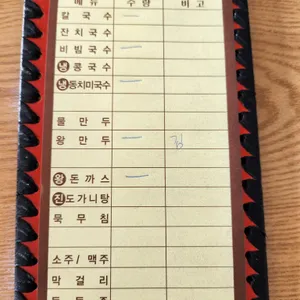 메뉴 수량 비고
칼국수 一
잔치국수
비빔국수 一
냉콩국수
냉동치미국수
물만두
왕만두 一
왕돈까스 一
진도가니탕
묵무침
소주/맥주
막걸리